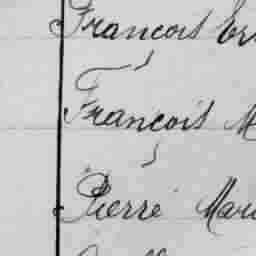 François
François M
Pierre Mari